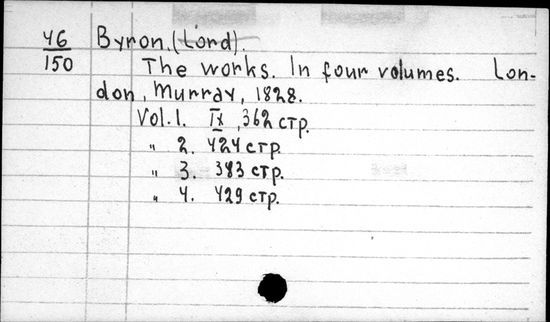 46
150
Byron. (Lord).
The works. In four volumes. Lon-
don, Murray, 1828.
Vol. 1. IX, 362 стр.
" 2. 424 стр.
" 3. 383 стр.
" 4. 429 стр.